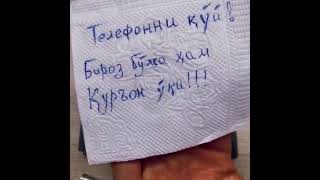 Телефонни қўй!
Бироз бўлса ҳам
Қуръон ўқи!!!